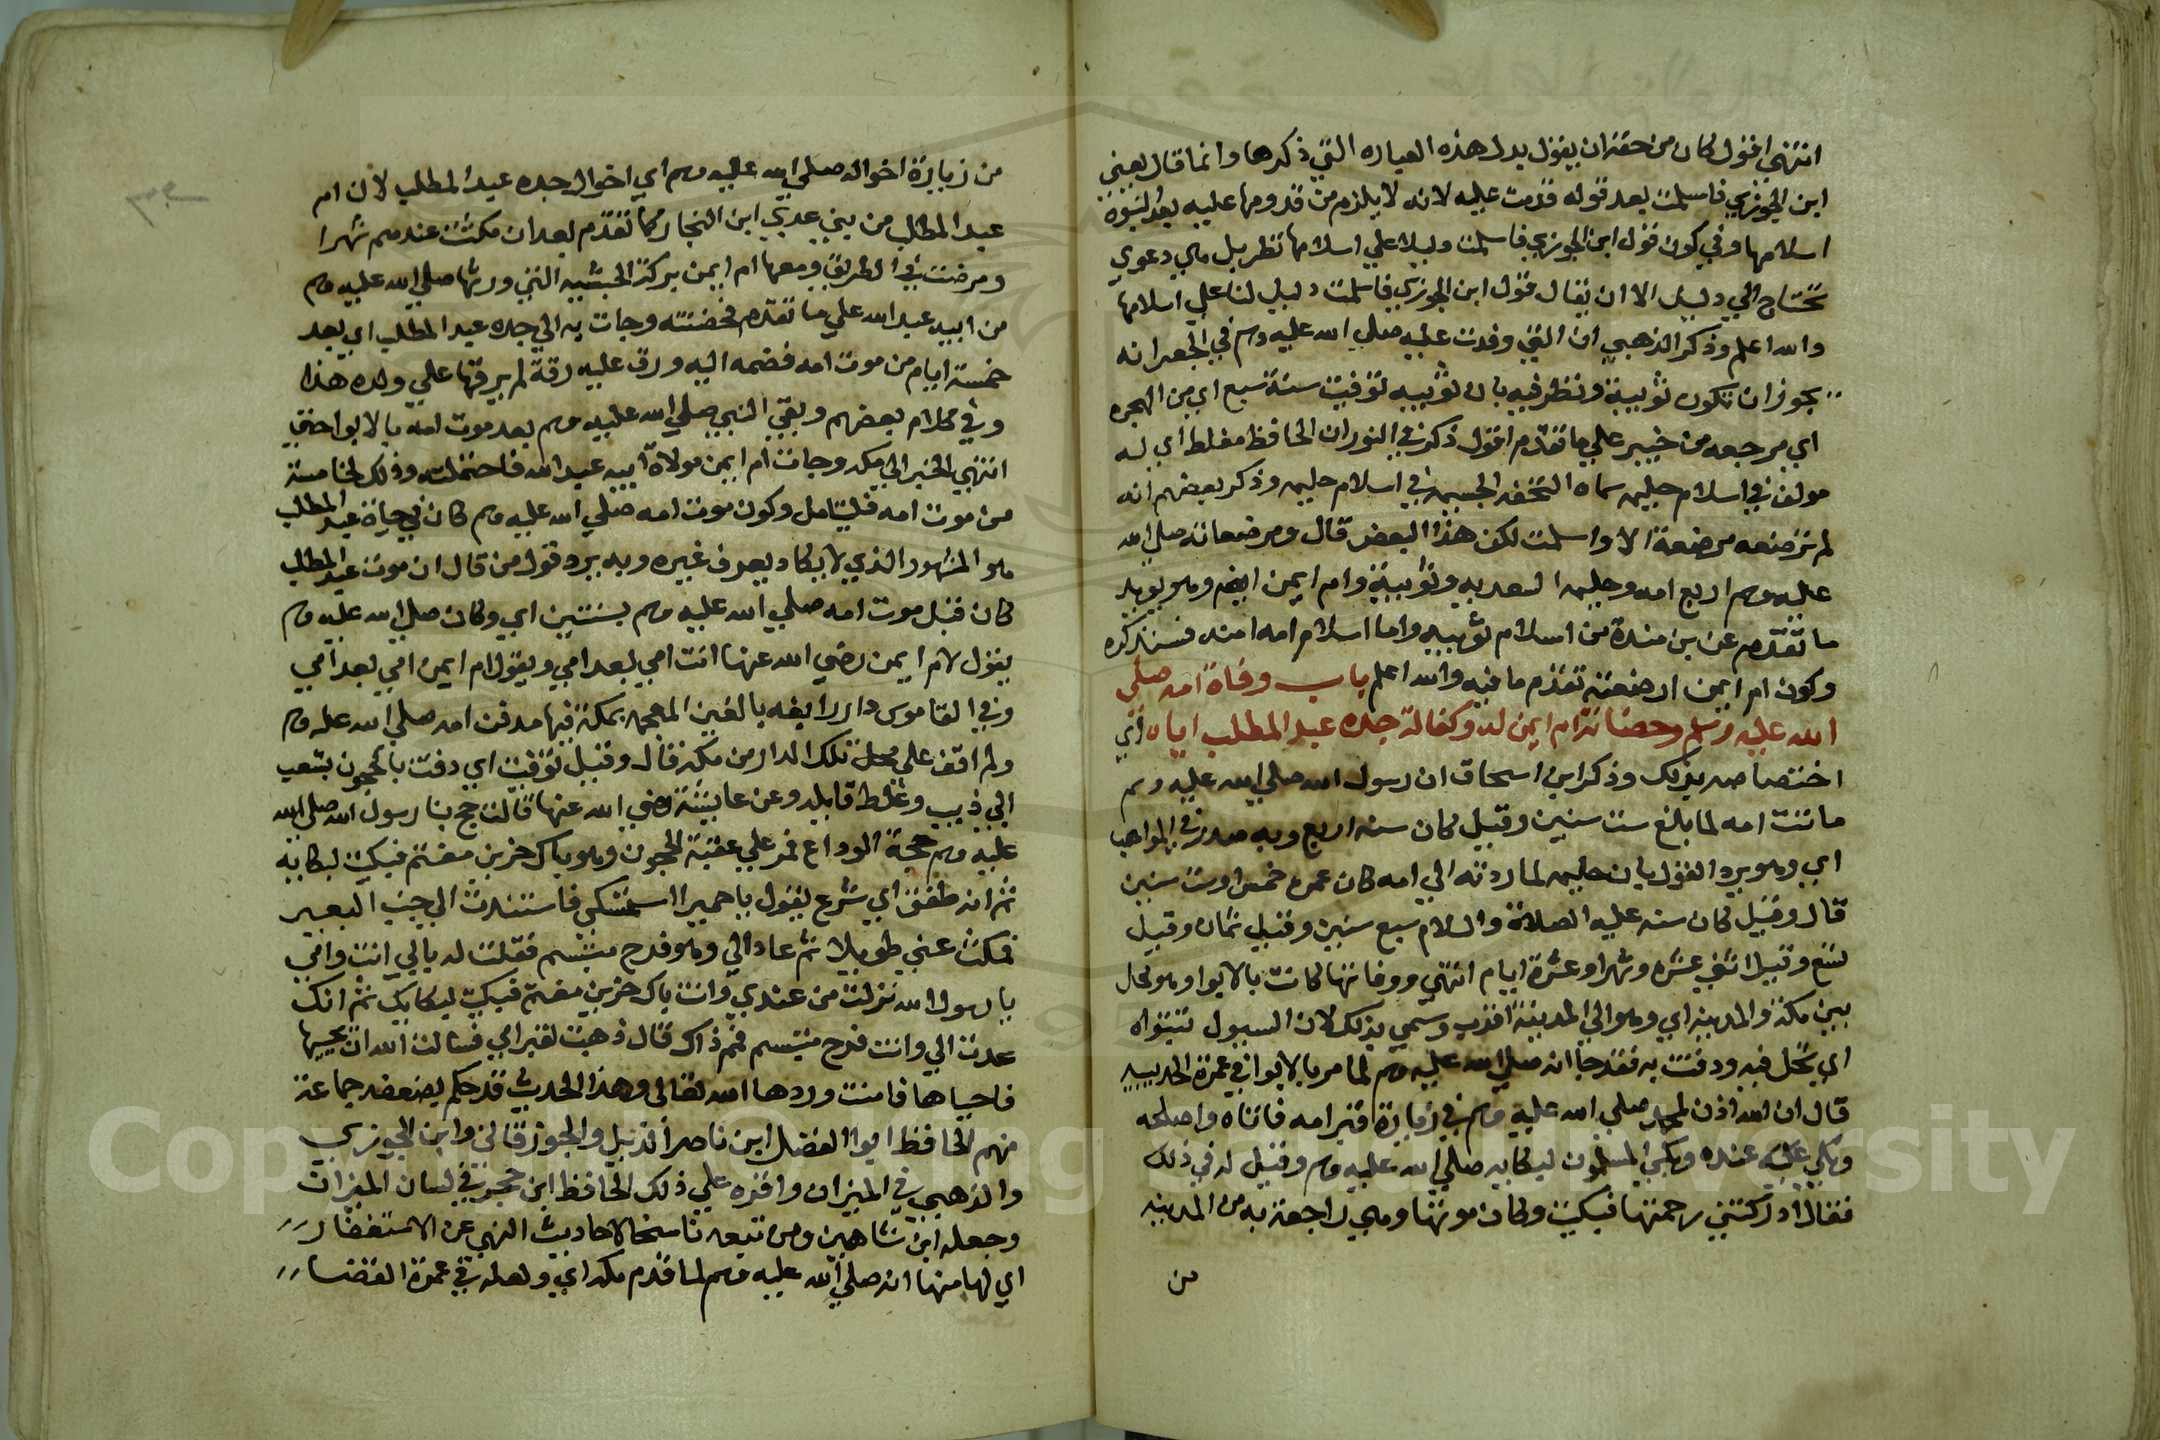 انتهي اقول كان من حقه ان يقول بدل هذه العباره التي ذكرها وانما قال يعني
ابن الجوزي فاسلمت بعد قوله قدمت عليه لانه لا يلزم من قدومها عليه بعد النبوة
اسلامها وفي كون قول ابن الجوزي فاسلمت دليلا علي اسلامها نظر بل هي دعوي
تحتاج الي دليل الا ان يقال قول ابن الجوزي فاسلمت دليل لنا علي اسلامها
والله اعلم وذكر الذهبي ان التي وفدت عليه صلي الله عليه وسلم في الجعرانه
يجوز ان تكون ثويبة ونظر فيه بان ثويبه توفيت سنة سبع اي من الهجره
اي مرجعه من خيبر علي ما تقدم اقول ذكر في النور ان الحافظ مغلطاي له
مولف في اسلام حليمه سماه التحفه الجسيمه في اسلام حليمه وذكر بعضهم انه
لم ترضعه مرضعة الا واسلمت لكن هذا البعض قال ومرضعاته صلي الله
عليه وسلم اربع امه وحليمه السعديه وثويبة وام ايمن ايضم وهو يويد
ما تقدم عن بن مندة من اسلام ثويبه واما اسلام امه امنه فسنذكره
وكون ام ايمن ارضعته تقدم ما فيه والله اعلم باب وفاة امه صلي
الله عليه وسلم وحضانة ام ايمن له وكفالة جده عبد المطلب اياه اي
اختصاصه بذلك وذكر ابن اسحاق ان رسول الله صلي الله عليه وسلم
ماتت امه لما بلغ ست سنين وقيل كان سنه اربع وبه صدر في المواهب
اي وهو يرد القول بان حليمه لما ردته الي امه كان عمره خمس او ست سنين
قال وقيل كان سنه عليه الصلاة والسلام سبع سنين وقيل ثمان وقيل
تسع وقيل اثني عشره وشهرا وعشرة ايام انتهي ووفاتها كانت بالابوا وهو محل
بين مكة والمدينه اي وهو الي المدينة اقرب وسمي بذلك لان السيول تتبواه
اي تحل فيه ودفنت به فقد جا انه صلي الله عليه وسلم لما مر بالابوا في عمرة الحديبيه
قال ان الله اذن لمحمد صلي الله عليه وسلم في زيارة قبر امه فاتاه واصلحه
وبكي عليه عنده وبكي المسلمون لبكايه صلي الله عليه وسلم وقيل له في ذلك
فقال ادركتني رحمتها فبكيت وكان موتها وهي راجعة به من المدينه
من
من زيارة اخواله صلي الله عليه وسلم اي اخوال جده عبد المطلب لان ام
عبد المطلب من بني عدي ابن النجار كما تقدم بعد ان مكثت عندهم شهرا
ومرضت في الطريق ومعها ام ايمن بركة الحبشيه التي ورثها صلي الله عليه وسلم
من ابيه عبد الله علي ما تقدم فحضنته وجات به الي جده عبد المطلب اي بعد
خمسة ايام من موت امه فضمه اليه ورق عليه رقة لم يرقها علي ولده هذا
وفي كلام بعضهم وبقي النبي صلي الله عليه وسلم بعد موت امه بالابوا حتي
انتهي الخبر الي مكه وجات ام ايمن مولاة ابيه عبد الله فاحتملته وذلك لخامسة
من موت امه فليتامل وكون موت امه صلي الله عليه وسلم كان في حياة عبد المطلب
هو المشهور الذي لا يكاد يعرف غيره وبه يرد قول من قال ان موت عبد المطلب
كان قبل موت امه صلي الله عليه وسلم بسنتين اي وكان صلي الله عليه وسلم
يقول لام ايمن رضي الله عنها انت امي بعد امي ويقول ام ايمن امي بعد امي
وفي القاموس دار رايغه بالغين المعجمه بمكة فيها مدفن امه صلي الله عله وسلم
ولم اقف علي محل تلك الدار من مكة قال وقيل توفيت اي دفنت بالحجون بشعب
ابي ذيب وغلط قايله وعن عايشة رضي الله عنها قالت حج بنا رسول الله صلي الله
عليه وسلم حجة الوداع فمر علي عقبة الحجون وهو باك حزين مغتم فبكيت لبكايه
ثم انه طفق اي شرع يقول يا حميرا استمسكي فاستندت الي جنب البعير
فمكث عني طويلا ثم عاد الي وهو فرح متبسم فقلت له بابي انت وامي
يا رسول الله نزلت من عندي وانت باك حزين مغتم فبكيت لبكايك ثم انك
عدت الي وانت فرح متبسم فمم ذاك قال ذهبت لقبر امي فسالت الله ان يحييها
فاحياها فامنت وردها الله تعالي وهذا الحديث قد حكم بضعفه جماعة
منهم الحافظ ابوا الفضل ابن ناصر الدين والجوزقاني وابن الجوزي
والذهبي في الميزان واقره علي ذلك الحافظ ابن حجر في لسان الميزان
وجعله ابن شاهين ومن تبعه ناسخا لاحاديث النهي عن الاستغفار
اي لها منها انه صلي الله عليه وسلم لما قدم مكه اي ولعله في عمرة القضا